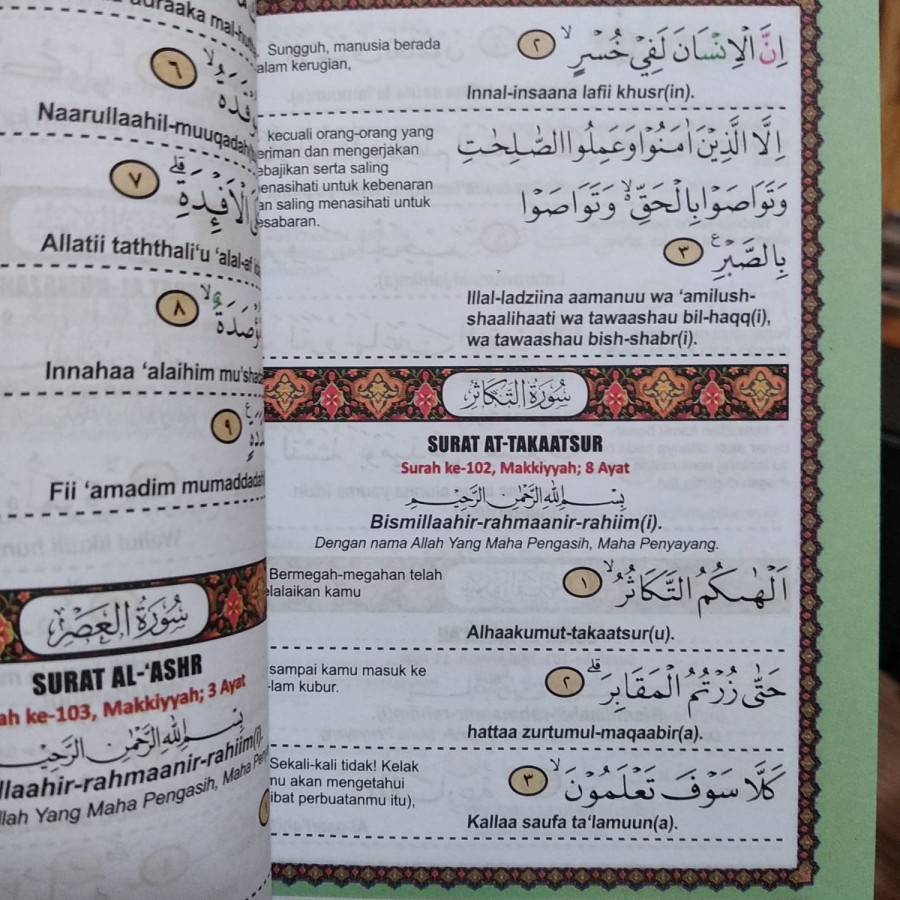 ٦
Naarullaahil-muuqadah
٧
الْأَفْـِٕدَةِ
Allatii taththali‘u ‘alal-af
٨
Innahaa ‘alaihim mu'shad
٩
Fii ‘amadim mumaddadah
سُورَةُ الْعَصْرِ
SURAT AL-‘ASHR
ah ke-103, Makkiyyah; 3 Ayat
بِسْمِ اللهِ الرَّحْمٰنِ الرَّحِيْمِ
llaahir-rahmaanir-rahiim(i).
llah Yang Maha Pengasih, Maha Pe
اِنَّ الْاِنْسَانَ لَفِيْ خُسْرٍۙ ٢
Sungguh, manusia berada
alam kerugian,
Innal-insaana lafii khusr(in).
اِلَّا الَّذِيْنَ اٰمَنُوْا وَعَمِلُوا الصّٰلِحٰتِ
وَتَوَاصَوْا بِالْحَقِّ ەۙ وَتَوَاصَوْا
بِالصَّبْرِ ࣖ ٣
kecuali orang-orang yang
eriman dan mengerjakan
ebajikan serta saling
enasihati untuk kebenaran
an saling menasihati untuk
esabaran.
Illal-ladziina aamanuu wa ‘amilush-
shaalihaati wa tawaashau bil-haqq(i),
wa tawaashau bish-shabr(i).
سُورَةُ التَّكَاثُرِ
SURAT AT-TAKAATSUR
Surah ke-102, Makkiyyah; 8 Ayat
بِسْمِ اللهِ الرَّحْمٰنِ الرَّحِيْمِ
Bismillaahir-rahmaanir-rahiim(i).
Dengan nama Allah Yang Maha Pengasih, Maha Penyayang.
اَلْهٰىكُمُ التَّكَاثُرُۙ ١
Bermegah-megahan telah
elalaikan kamu
Alhaakumut-takaatsur(u).
حَتّٰى زُرْتُمُ الْمَقَابِرَۗ ٢
sampai kamu masuk ke
lam kubur.
hattaa zurtumul-maqaabir(a).
كَلَّا سَوْفَ تَعْلَمُوْنَۙ ٣
Sekali-kali tidak! Kelak
mu akan mengetahui
ibat perbuatanmu itu),
Kallaa saufa ta‘lamuun(a).